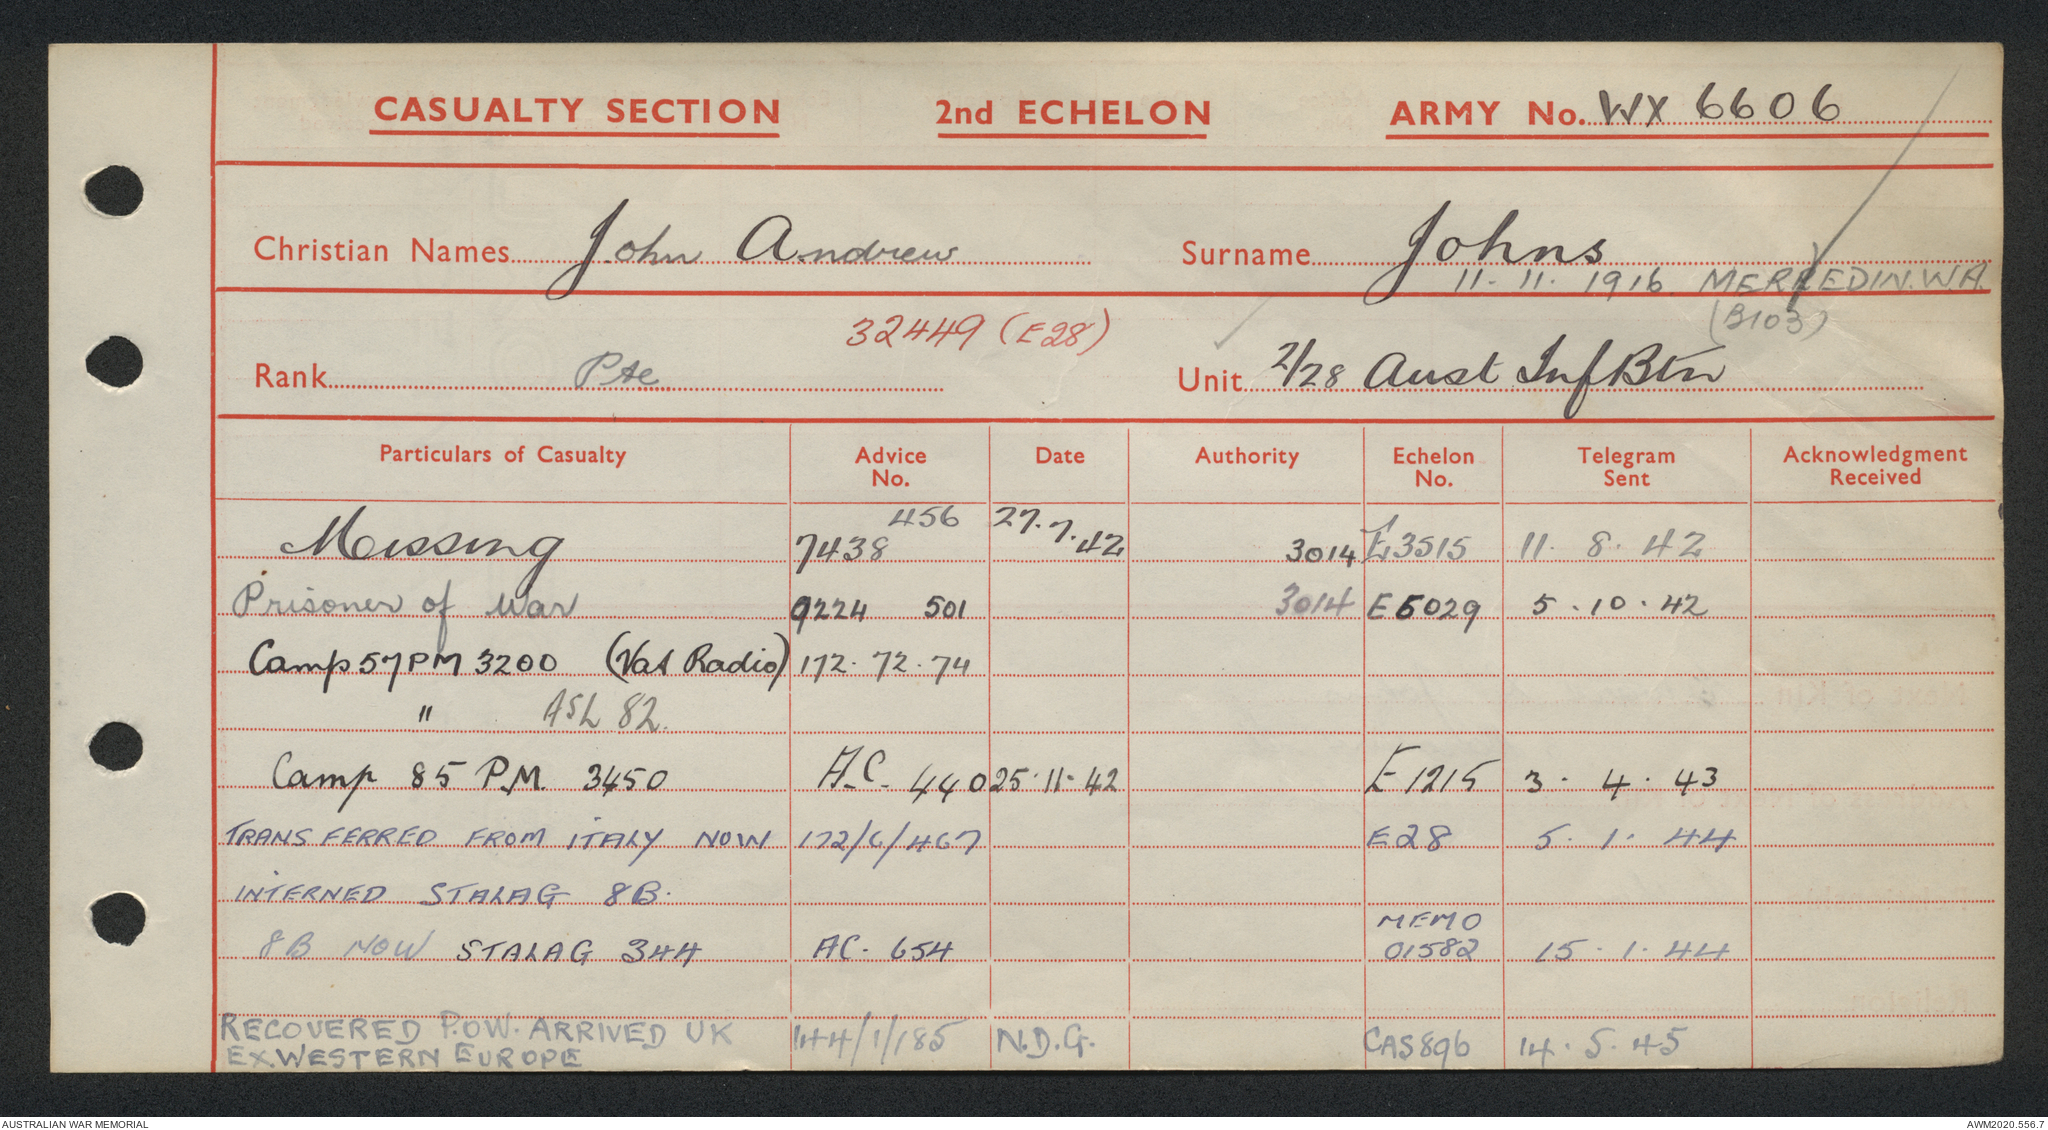 CASUALTY SECTION 2nd ECHELON ARMY No. WX 6606
Christian Names John Andrew Surname Johns
11. 11. 1916 MERREDIN. W.A.
32449 (E28) (B103)
Rank Pte Unit 2/28 Aust Inf Btn
Particulars of Casualty Advice No. Date Authority Echelon No. Telegram Sent Acknowledgment Received
Missing 7438 456 27.7.42 3014 E3515 11. 8. 42
Prisoner of War 9224 501 3014 E5029 5. 10. 42
Camp 57 PM 3200 (Vat Radio) 172. 72. 74
" ASL 82.
Camp 85 P.M. 3450 A.C. 440 25.11.42 E1215 3. 4. 43
TRANSFERRED FROM ITALY NOW 172/6/467 E28 5. 1. 44
INTERNED STALAG 8B.
8B NOW STALAG 344 AC. 654 MEMO 01582 15. 1. 44
RECOVERED P.O.W. ARRIVED UK 144/1/185 N.D.G. CAS896 14. 5. 45
EX WESTERN EUROPE
AUSTRALIAN WAR MEMORIAL AWM2020.556.7